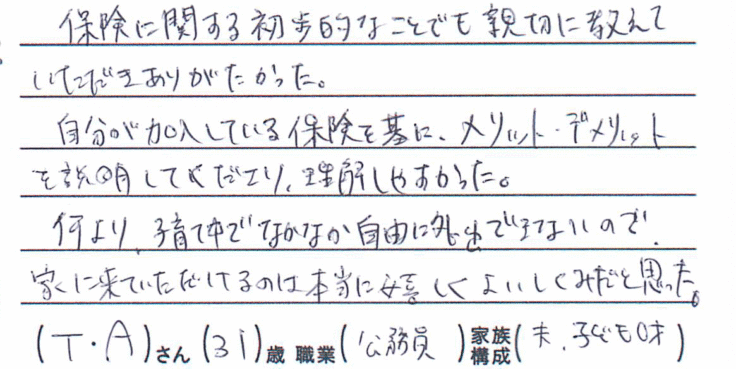 保険に関する初歩的なことでも親切に教えて
いただきありがたかった。
自分が加入している保険を基に、メリット・デメリット
を説明してくださり、理解しやすかった。
何より、子育て中でなかなか自由に外出できないので、
家に来ていただけるのは本当に嬉しくよいしくみだと思った。
(T・A)さん(31)歳 職業(公務員)家族構成(夫、子ども0才)